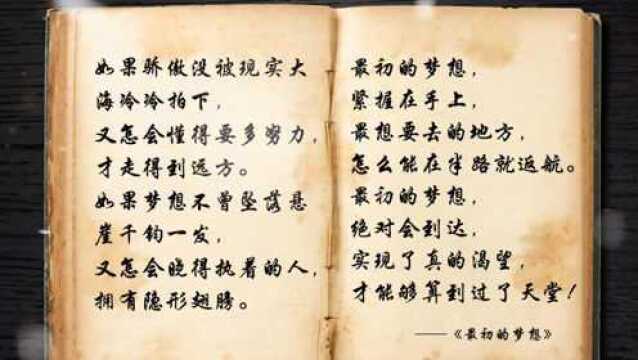 如果骄傲没被现实大
海冷冷拍下，
又怎会懂得要多努力，
才走得到远方。
如果梦想不曾坠落悬
崖千钧一发，
又怎会晓得执着的人，
拥有隐形翅膀。
最初的梦想，
紧握在手上，
最想要去的地方，
怎么能在半路就返航。
最初的梦想，
绝对会到达，
实现了真的渴望，
才能够算到过了天堂！
——《最初的梦想》